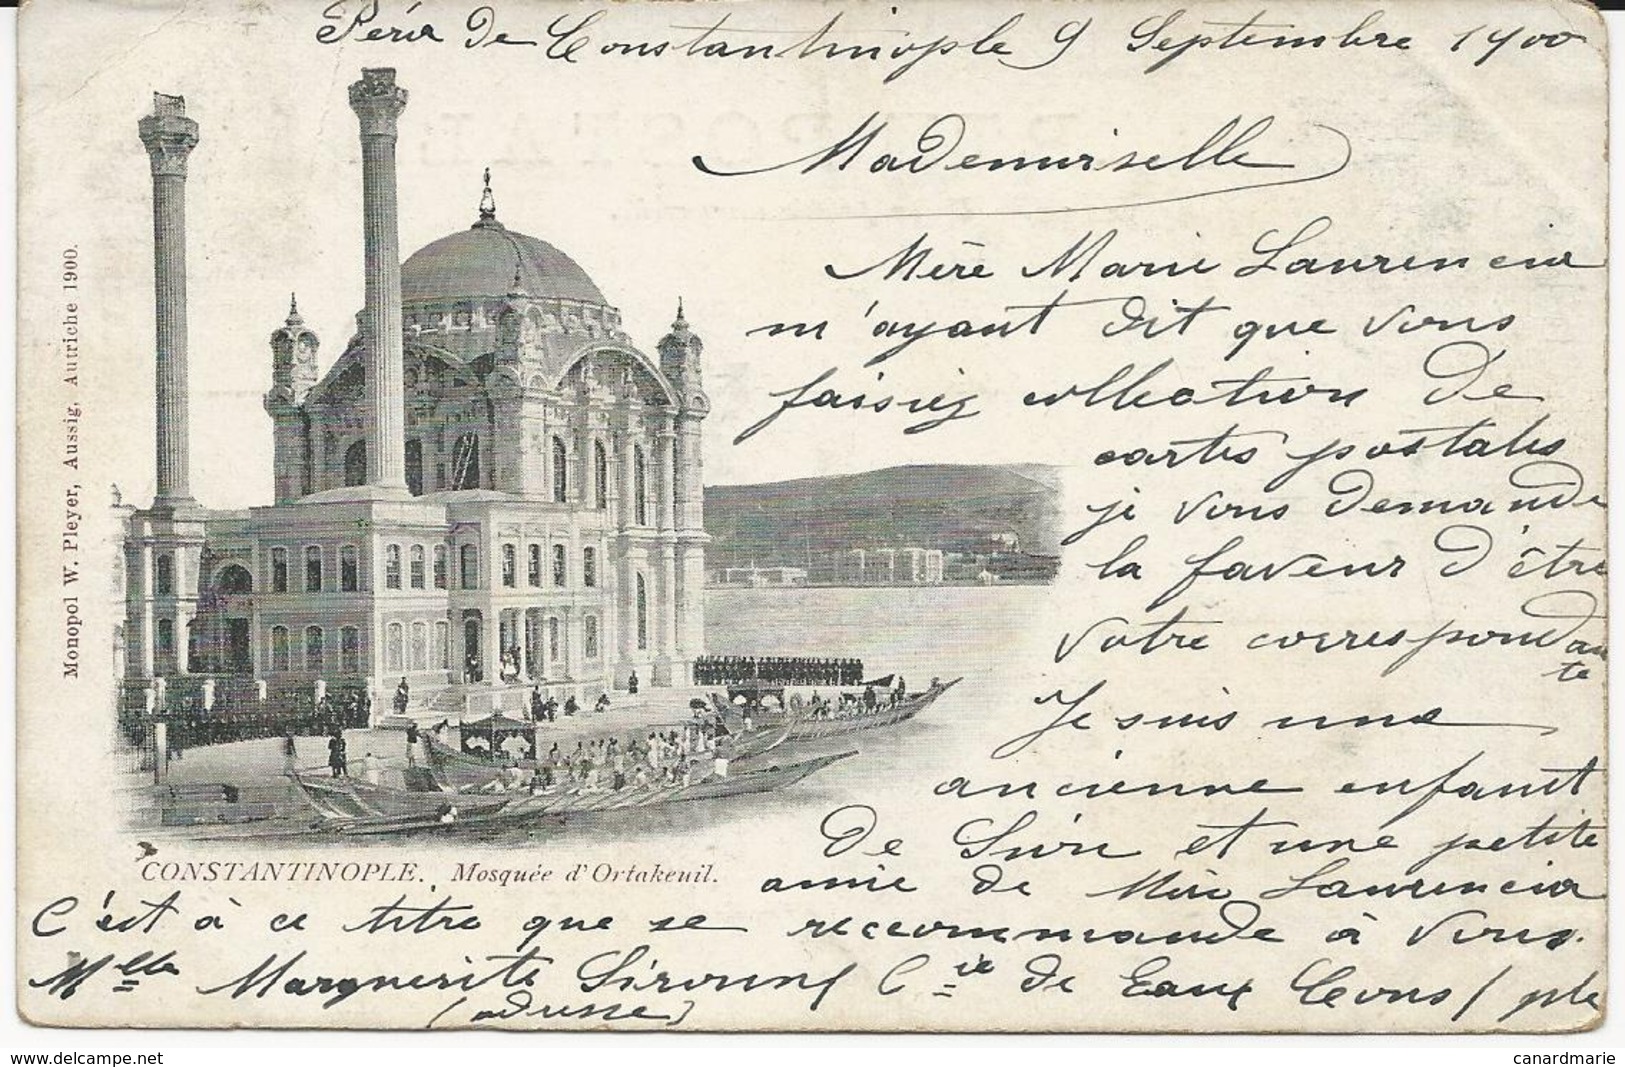 Péra De Constantinople 9 Septembre 1900
Mademoiselle
Mère Marie Laurencia
m'ayant dit que vous
faisiez collection De
cartes postales
je vous Demande
la faveur D'être
votre correspondan
te
Je suis une
ancienne enfant
De Sion et une petite
amie de Mère Laurencia
C'est à ce titre que se recommande à vous.
Mlle Marguerite Cie de Eaux Cons/ple
(adresse)
CONSTANTINOPLE. Mosquée d'Ortakeuil.
Monopol W. Pleyer, Aussig, Autriche 1900.
www.delcampe.net
canardmarie